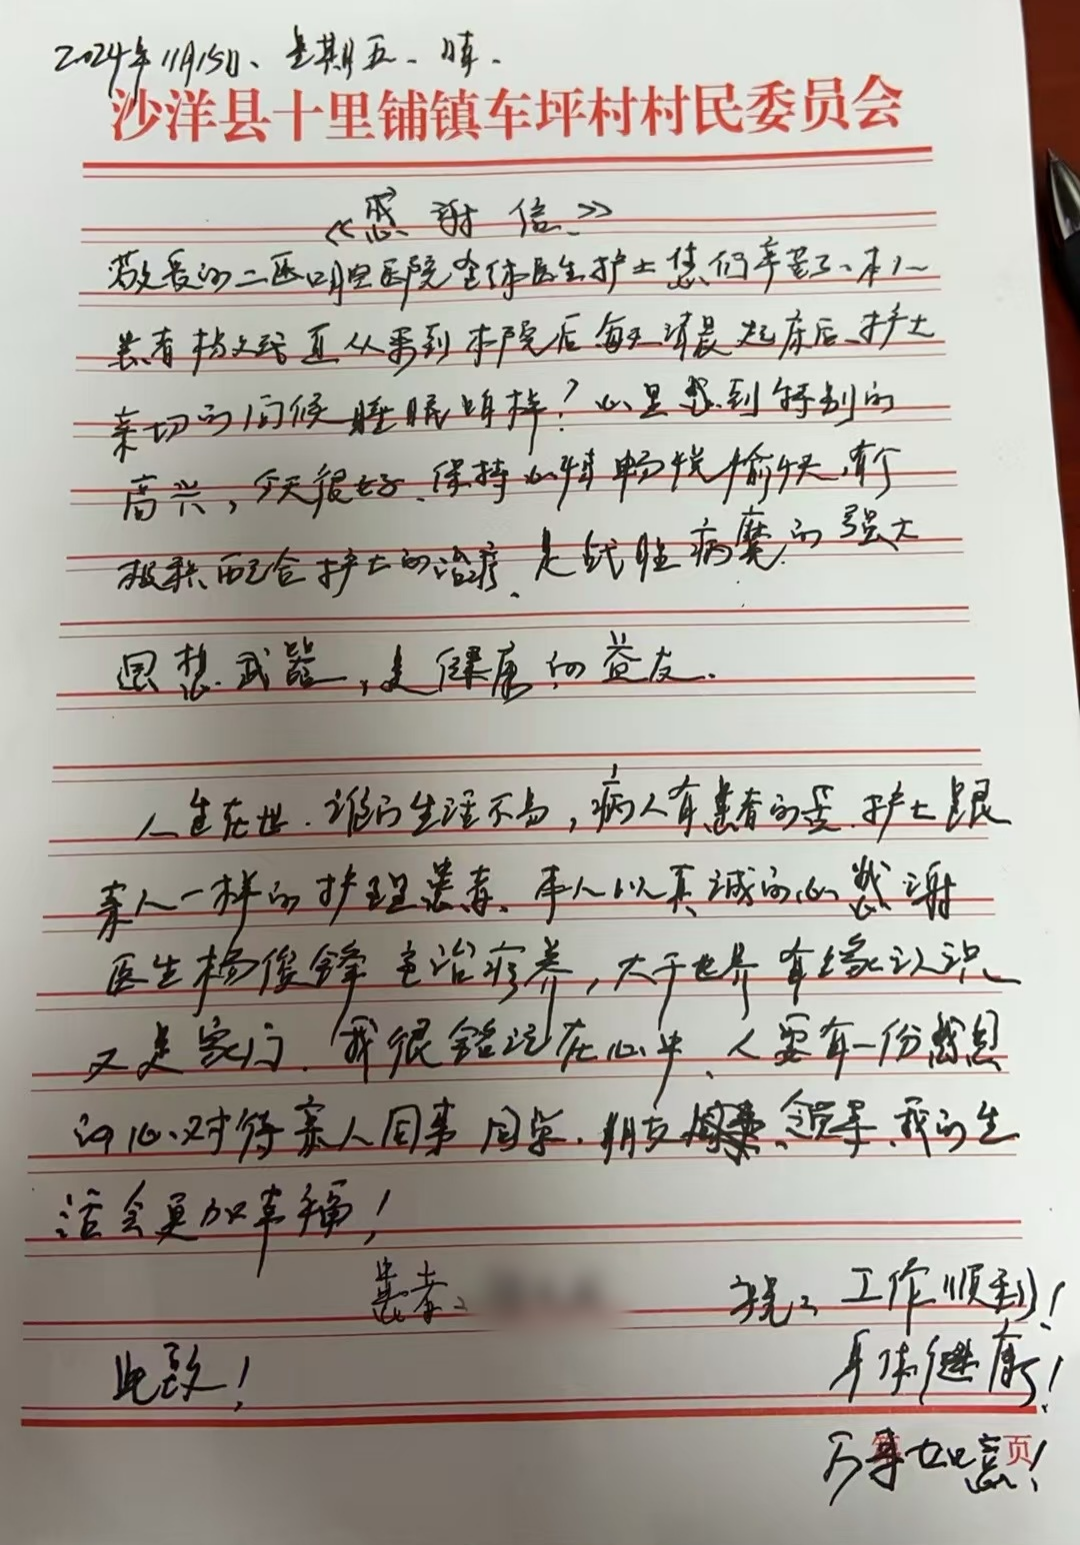 2024年11月15日、星期五、晴、
沙洋县十里铺镇车坪村村民委员会
《感谢信》
敬爱的二医口腔医院全体医生护士您们辛苦了、本人
患者 从来到本院后每天清晨起床后、护士
亲切的问候睡眠咱样?心里感到特别的
高兴,今天很好、保持心情畅悦愉快,有个
积极配合护士的治疗、是战胜病魔的强大
思想武器,是健康的益友.
人生在世.谁的生活不易,病人有患者的苦.护士跟
亲人一样的护理患者、本人以真诚的心感谢
医生杨俊锋 治疗养,大千世界有缘认识
又是家门.我很铭记在心中、人要有一份感恩
的心、对待亲人同事同学.朋友 领导、我的生
活会更加幸福!
患者:
祝:工作顺利!
此致!
身体健康!
万事如意!
页